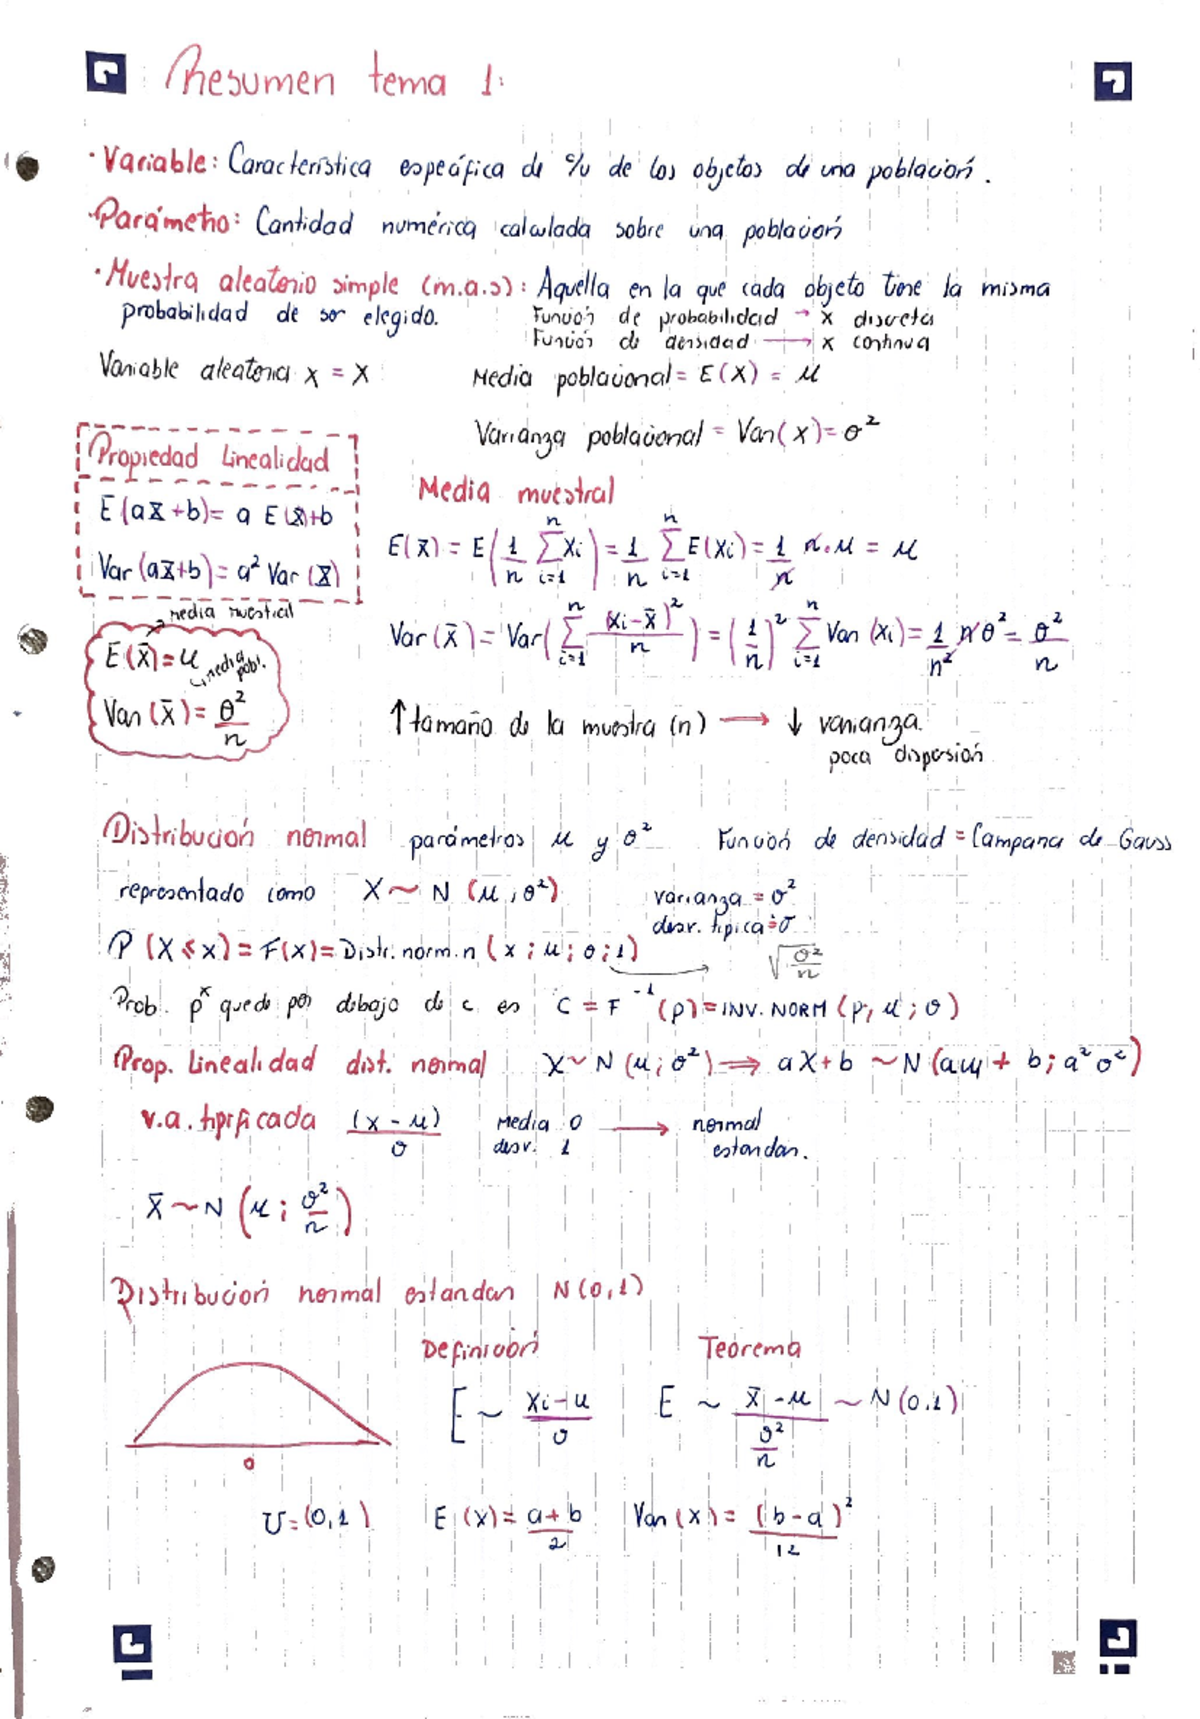 Resumen tema 1:
· Variable: Característica específica de c/u de los objetos de una población.
· Parámetro: Cantidad numérica calculada sobre una población
· Muestra aleatorio simple (m.a.s): Aquella en la que cada objeto tiene la misma
probabilidad de ser elegido.
Función de probabilidad → x discreta
Función de densidad → x continua
Variable aleatoria x = X
Media poblacional = E(X) = μ
Varianza poblacional = Var(X) = σ²
Propiedad Linealidad
E(aX+b) = a E(X)+b
Var(aX+b) = a² Var(X)
Media muestral
E(x̄) = E(1/n Σ_{i=1}^{n} Xi) = 1/n Σ_{i=1}^{n} E(Xi) = 1/n n·μ = μ
Var(x̄) = Var(Σ_{i=1}^{n} (Xi-x̄)²/n) = (1/n)² Σ_{i=1}^{n} Var(Xi) = 1/n² nσ² = σ²/n
media muestral
E(x̄) = μ media pobl.
Var(x̄) = σ²/n
↑ tamaño de la muestra (n) → ↓ varianza.
poca dispersión
Distribución normal parámetros μ y σ² Función de densidad = Campana de Gauss
representado como X ~ N (μ, σ²)
varianza = σ²
desv. típica = σ
P (X ≤ x) = F(x) = Distr. norm. n (x ; μ ; σ ; 1) → √σ²/n
Prob. p x quede por debajo de c es c = F⁻¹ (p) = INV. NORM (p, μ ; σ)
Prop. Linealidad dist. normal X ~ N (μ ; σ²) ⟹ aX+b ~ N (aμ + b ; a²σ²)
v.a. tipificada (x - μ)/σ Media 0 desv. 1 → normal estandar.
x̄ ~ N (μ ; σ²/n)
Distribución normal estandar N(0,1)
Definición Teorema
E ~ Xi-μ/σ E ~ x̄-μ/(σ²/n) ~ N(0,1)
0
U = (0,1) E(x) = a+b/2 Var(x) = (b-a)²/12